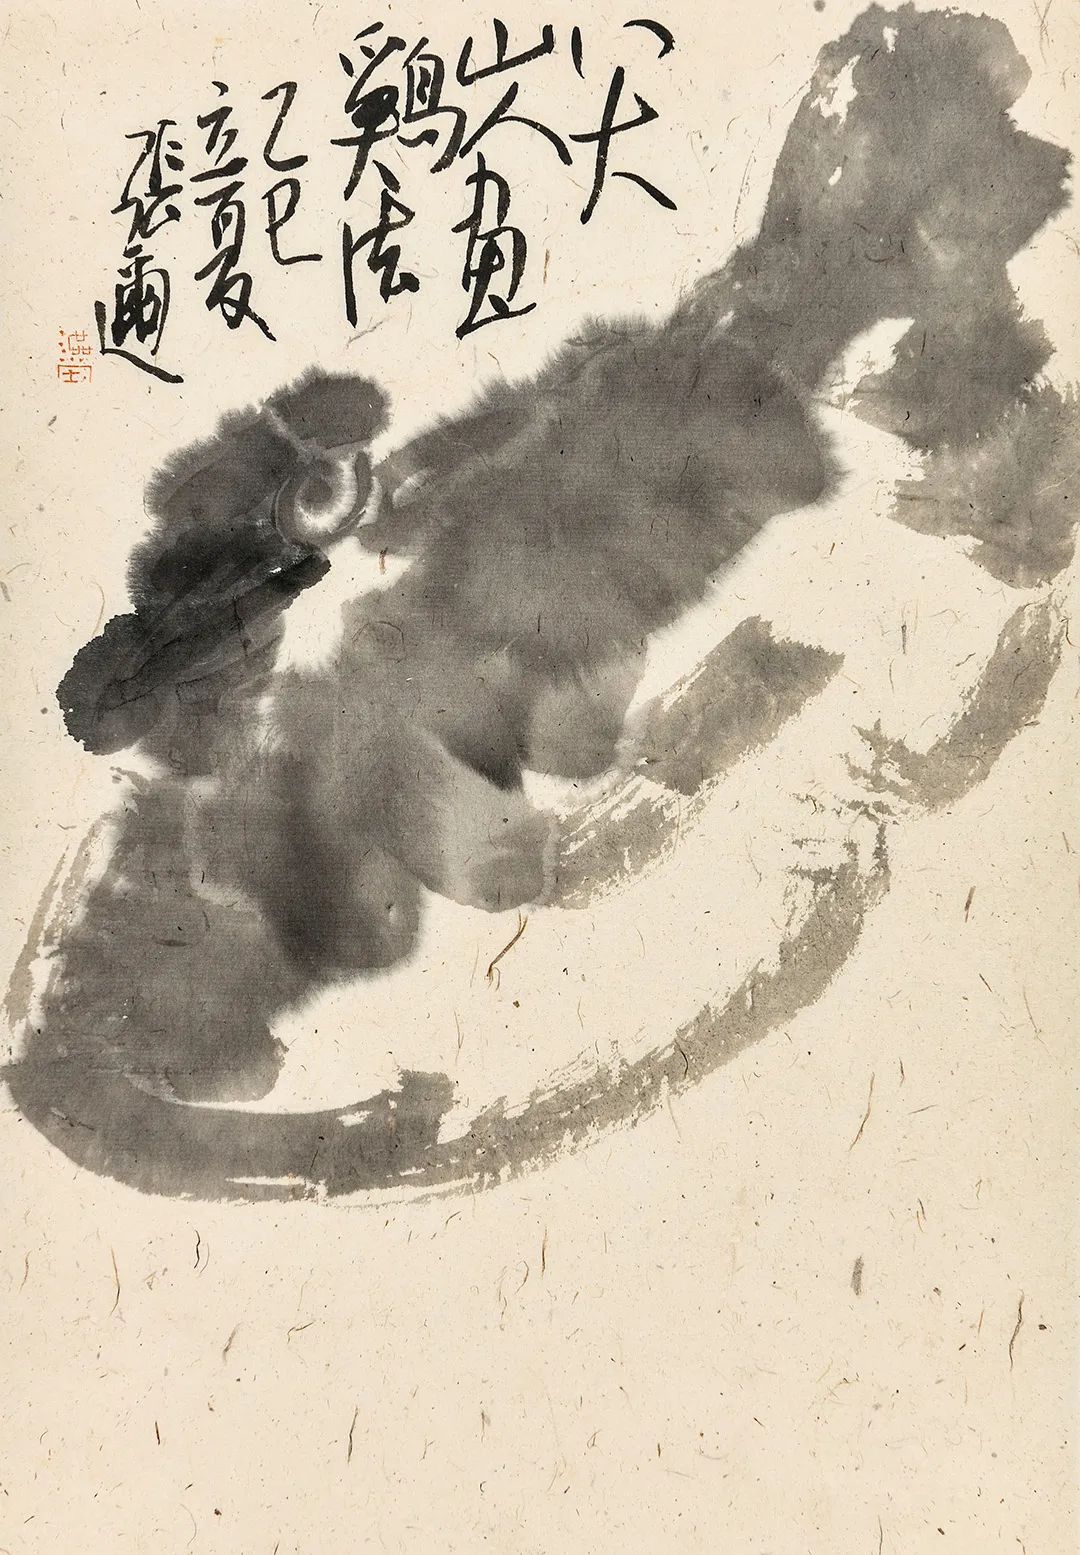 八大
山人画
鷄法
乙巳
立夏
張爾